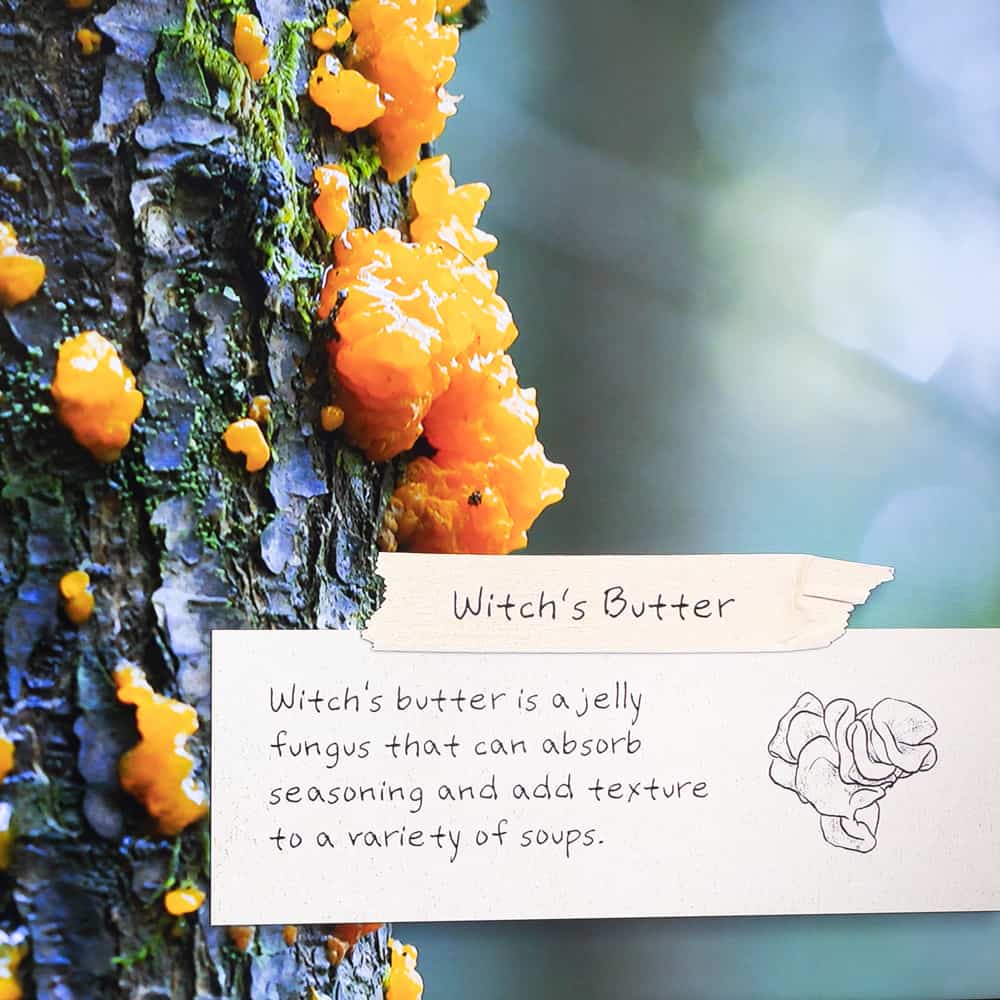 Witch's Butter
Witch's butter is a jelly
fungus that can absorb
seasoning and add texture
to a variety of soups.